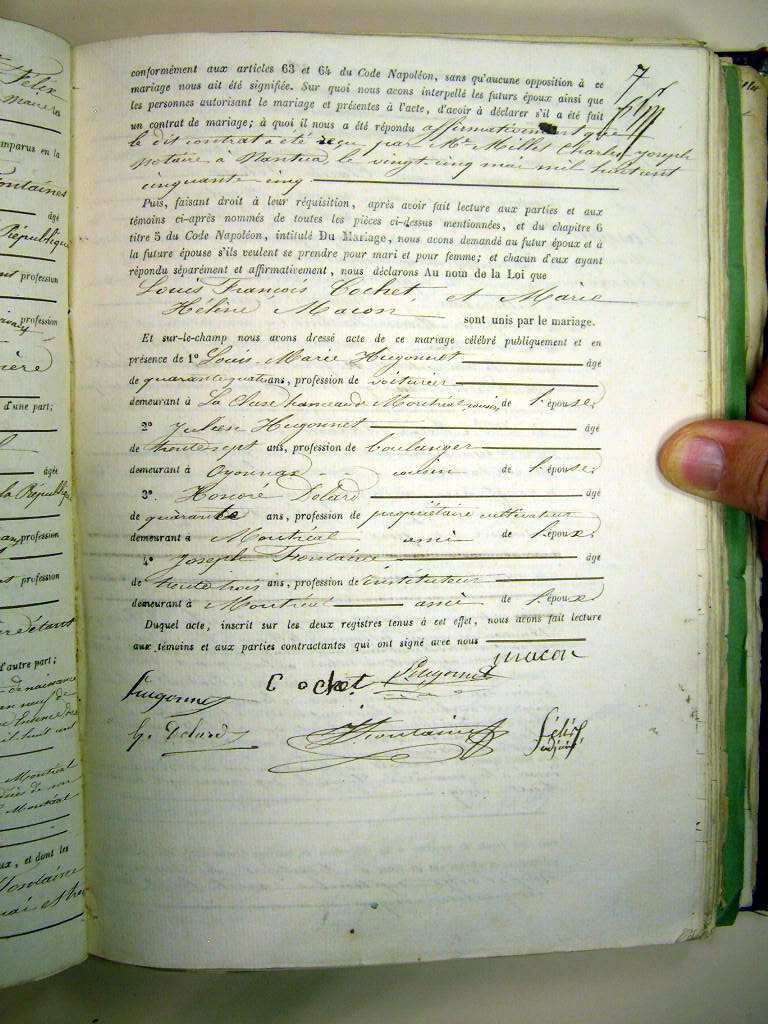 7
conformément aux articles 63 et 64 du Code Napoléon, sans qu'aucune opposition à ce
mariage nous ait été signifiée. Sur quoi nous avons interpellé les futurs époux ainsi que
les personnes autorisant le mariage et présentes à l'acte, d'avoir à déclarer s'il a été fait
un contrat de mariage; à quoi il nous a été répondu affirmativement que
le dit contrat a été reçu par Me Millet Charles Joseph
notaire à Nantua, le vingt cinq mai mil huit cent
cinquante cinq
Puis, faisant droit à leur réquisition, après avoir fait lecture aux parties et aux
témoins ci-après nommés de toutes les pièces ci-dessus mentionnées, et du chapitre 6
titre 5 du Code Napoléon, intitulé Du Mariage, nous avons demandé au futur époux et à
la future épouse s'ils veulent se prendre pour mari et pour femme; et chacun d'eux ayant
répondu séparément et affirmativement, nous déclarons Au nom de la Loi que
Louis François Cochet, et Marie
Hélène Macon sont unis par le mariage.
Et sur-le-champ nous avons dressé acte de ce mariage célébré publiquement et en
présence de 1° Louis Marie Hugonnet âgé
de quarante quatre ans, profession de voiturier
demeurant à La Cluse hameau de Montréal cousin de l'épouse,
2° Julien Hugonnet âgé
de trente sept ans, profession de boulanger
demeurant à Oyonnax cousin de l'épouse,
3° Honoré Dolard âgé
de quarante ans, profession de propriétaire cultivateur
demeurant à Montréal ami de l'époux,
4° Joseph Fontaine âgé
de trente trois ans, profession de instituteur
demeurant à Montréal ami de l'époux
Duquel acte, inscrit sur les deux registres tenus à cet effet, nous avons fait lecture
aux témoins et aux parties contractantes qui ont signé avec nous
macon
hugonnet Cochet Hugonnet
h. Dolard J. Fontaine Félix
adjoint
Félix
Marie
mparus en la
Fontaines
âgé
République
profession
profession
d'une part;
âgée
la République
profession
profession
d'autre part;
Montréal
ux, et dont les
Fontaine